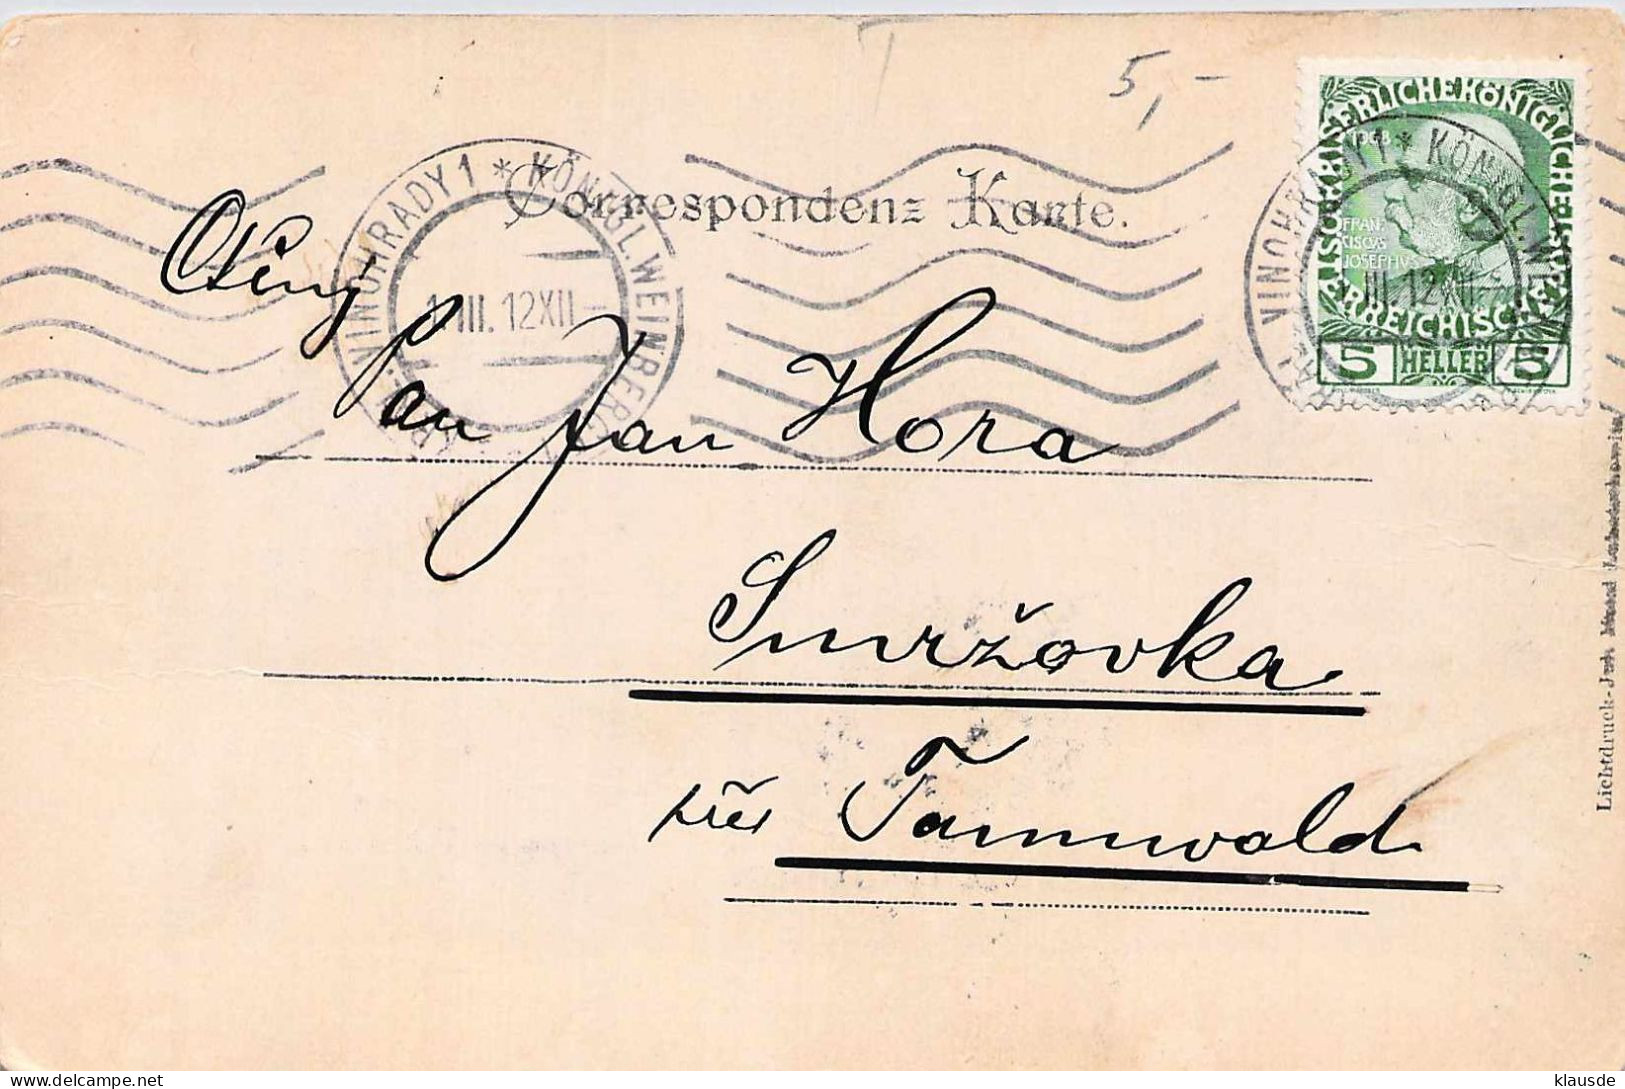 5,-
Correspondenz Karte.
KRÁL. VINOHRADY 1 * KÖNIGL. WEINBERGE 1
1. III. 12 XII-
KAISERLICHE KÖNIGLICHE ÖSTERREICHISCHE POST
1908
FRAN
CISCVS
JOSEPHVS
5 HELLER 5
KRÁL. VINOHRADY 1 * KÖNIGL. WEINBERGE 1
1. III. 12 XII-
Pan Jan Hora
Smržovka
Tannwald
Lichtdruck-
klausde